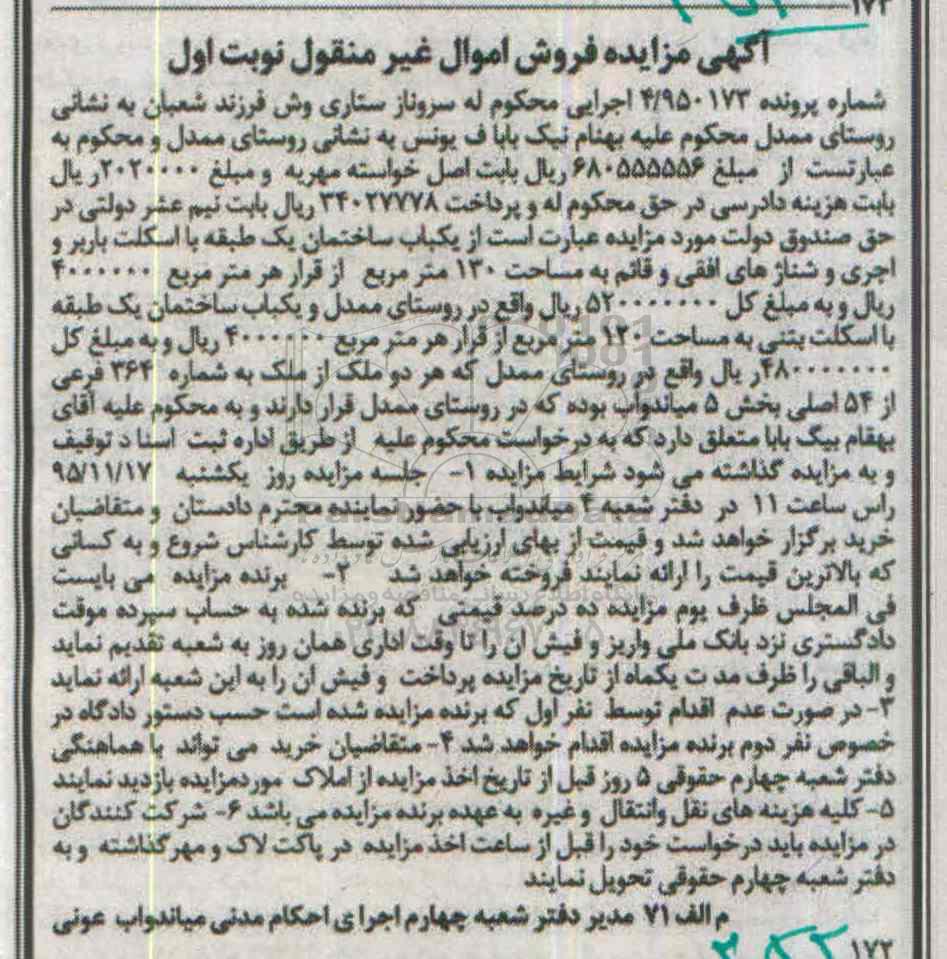 ۱۷۳
آگهی مزایده فروش اموال غیر منقول نوبت اول
شماره پرونده ۴/۹۵۰۱۷۳ اجرایی محکوم له سروناز ستاری وش فرزند شعبان به نشانی
روستای ممدل محکوم علیه بهنام نیک بابا ف یونس به نشانی روستای ممدل و محکوم به
عبارتست از مبلغ ۶۸۰۵۵۵۵۵۶ ریال بابت اصل خواسته مهریه و مبلغ ۲۰۲۰۰۰۰ر یال
بابت هزینه دادرسی در حق محکوم له و پرداخت ۳۴۰۲۷۷۷۸ ریال بابت نیم عشر دولتی در
حق صندوق دولت مورد مزایده عبارت است از یکباب ساختمان یک طبقه با اسکلت باربر و
اجری و شناژ های افقی و قائم به مساحت ۱۳۰ متر مربع از قرار هر متر مربع ۴۰۰۰۰۰۰
ریال و به مبلغ کل ۵۲۰۰۰۰۰۰۰ ریال واقع در روستای ممدل و یکباب ساختمان یک طبقه
با اسکلت بتنی به مساحت ۱۲۰ متر مربع از قرار هر متر مربع ۴۰۰۰۰۰۰ ریال و به مبلغ کل
۴۸۰۰۰۰۰۰۰ر یال واقع در روستای ممدل که هر دو ملک از ملک به شماره ۳۶۴ فرعی
از ۵۴ اصلی بخش ۵ میاندواب بوده که در روستای ممدل قرار دارند و به محکوم علیه آقای
بهقام بیگ بابا متعلق دارد که به درخواست محکوم علیه از طریق اداره ثبت اسنا د توقیف
و به مزایده گذاشته می شود شرایط مزایده ۱- جلسه مزایده روز یکشنبه ۹۵/۱۱/۱۷
راس ساعت ۱۱ در دفتر شعبه ۴ میاندواب با حضور نماینده محترم دادستان و متقاضیان
خرید برگزار خواهد شد و قیمت از بهای ارزیابی شده توسط کارشناس شروع و به کسانی
که بالاترین قیمت را ارائه نمایند فروخته خواهد شد ۲- برنده مزایده می بایست
فی المجلس ظرف یوم مزایده ده درصد قیمتی که برنده شده به حساب سپرده موقت
دادگستری نزد بانک ملی واریز و فیش ان را تا وقت اداری همان روز به شعبه تقدیم نماید
و الباقی را ظرف مد ت یکماه از تاریخ مزایده پرداخت و فیش ان را به این شعبه ارائه نماید
۳- در صورت عدم اقدام توسط نفر اول که برنده مزایده شده است حسب دستور دادگاه در
خصوص نفر دوم برنده مزایده اقدام خواهد شد ۴- متقاضیان خرید می تواند با هماهنگی
دفتر شعبه چهارم حقوقی ۵ روز قبل از تاریخ اخذ مزایده از املاک موردمزایده بازدید نمایند
۵- کلیه هزینه های نقل وانتقال و غیره به عهده برنده مزایده می باشد ۶- شرکت کنندگان
در مزایده باید درخواست خود را قبل از ساعت اخذ مزایده در پاکت لاک و مهر گذاشته و به
دفتر شعبه چهارم حقوقی تحویل نمایند
م الف ۷۱ مدیر دفتر شعبه چهارم اجرا ی احکام مدنی میاندواب عونی
۱۷۲